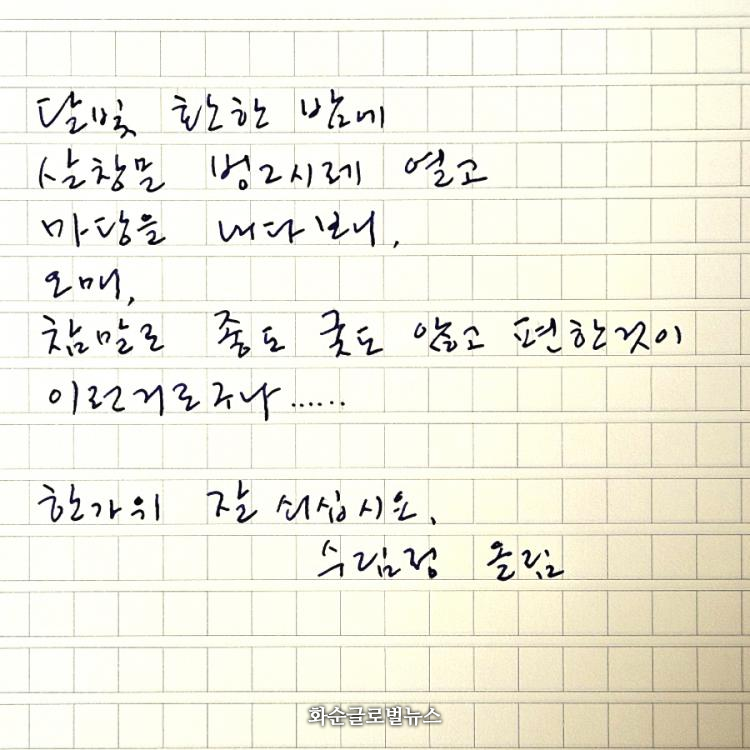 달빛 환한 밤에
살창문 벙그시레 열고
마당을 내다보니,
오매,
참말로 좋도 궂도 않고 편한것이
이런거로구나......
한가위 잘 쇠십시오.
수림정 올림
화순글로벌뉴스